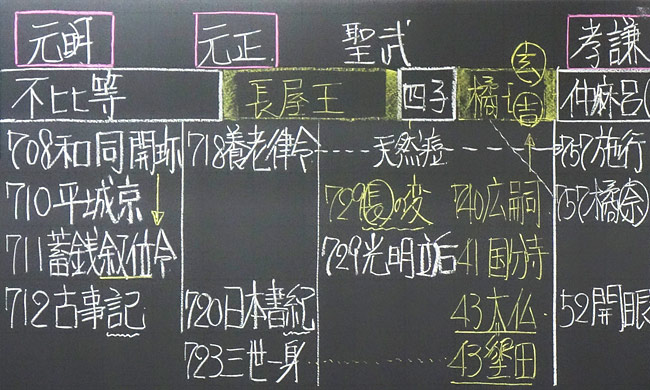 元明 元正 聖武 孝謙
玄
不比等 長屋王 四子 橘 吉 仲麻呂(
708和同開珎 718養老律令 天然痘 757施行
710平城京 729長の変 740広嗣 757橘奈
711蓄銭叙位令 729光明立后 41国分寺
712古事記 720日本書紀 43大仏 52開眼
723三世一身 43墾田